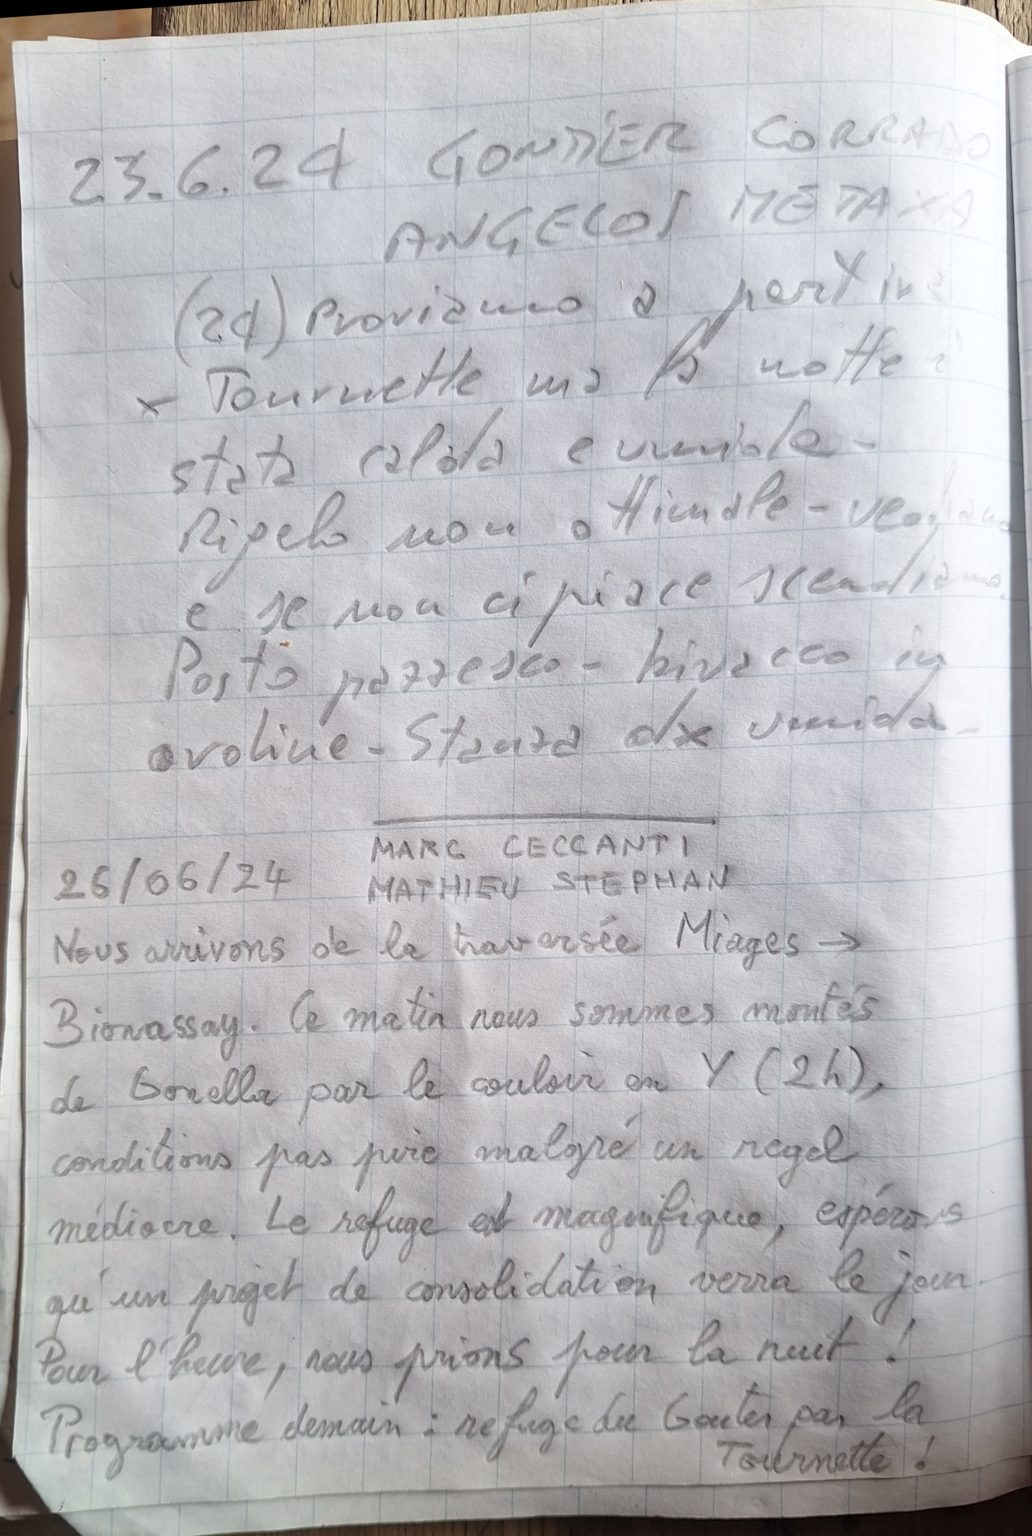 23.6.24 GONTIER CORRADO
ANGELOS METAXA
(24) Proviamo a partire
x Tournette ma la notte è
stata calda e umida -
Rigelo non ottimale - vediamo
e se non ci piace scendiamo.
Posto pazzesco - bivacco in
ovoline - Stanza dx umida -
MARC CECCANTI
26/06/24 MATHIEU STEPHAN
Nous arrivons de la traversée Miages →
Bionassay. Ce matin nous sommes montés
de Gonella par le couloir en Y (2h),
conditions pas pire malgré un regel
médiocre. Le refuge est magnifique, espérons
qu'un projet de consolidation verra le jour.
Pour l'heure, nous prions pour la nuit !
Programme demain : refuge du Gouter par la
Tournette !